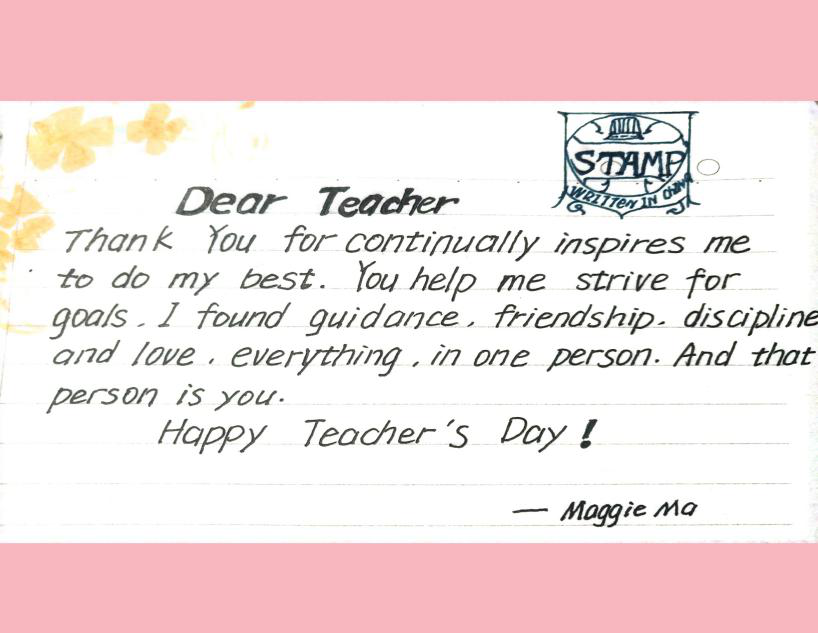 STAMP
WRITTEN IN CHINA
Dear Teacher
Thank You for continually inspires me
to do my best. You help me strive for
goals. I found guidance, friendship. discipline
and love, everything, in one person. And that
person is you.
Happy Teacher's Day!
— Maggie Ma